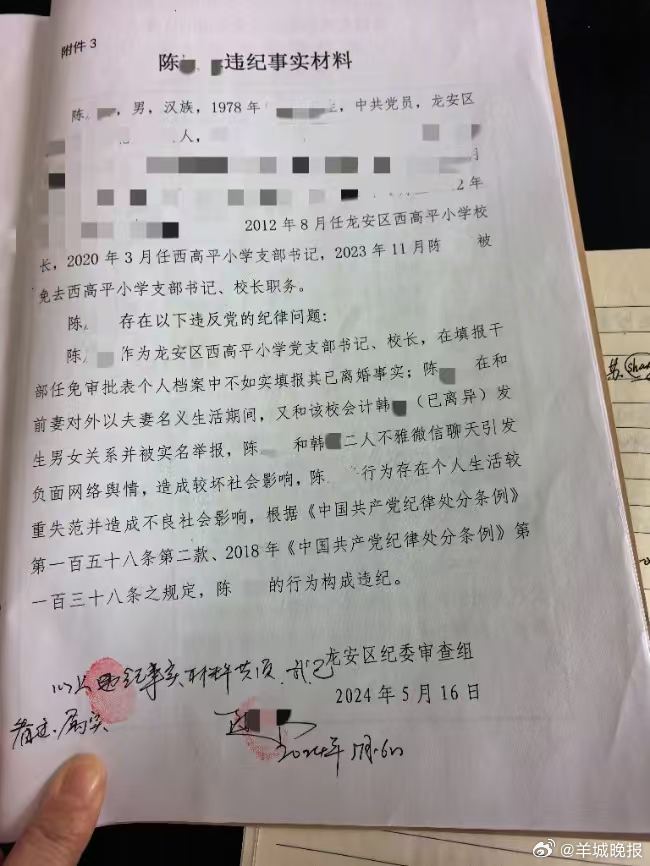 附件3
陈 违纪事实材料
陈 ,男,汉族,1978年 ,中共党员,龙安区
人,
月
2年
2012年8月任龙安区西高平小学校
长,2020年3月任西高平小学支部书记,2023年11月陈 被
免去西高平小学支部书记、校长职务。
陈 存在以下违反党的纪律问题:
陈 作为龙安区西高平小学党支部书记、校长,在填报干
部任免审批表个人档案中不如实填报其已离婚事实;陈 在和
前妻对外以夫妻名义生活期间,又和该校会计韩 (已离异)发
生男女关系并被实名举报,陈 和韩 二人不雅微信聊天引发
负面网络舆情,造成较坏社会影响,陈 行为存在个人生活较
重失范并造成不良社会影响,根据《中国共产党纪律处分条例》
第一百五十八条第二款、2018年《中国共产党纪律处分条例》第
一百三十八条之规定,陈 的行为构成违纪。
龙安区纪委审查组
2024年5月16日
以上违纪事实材料共1页,我已
看过,属实
2024年5月16日
@羊城晚报